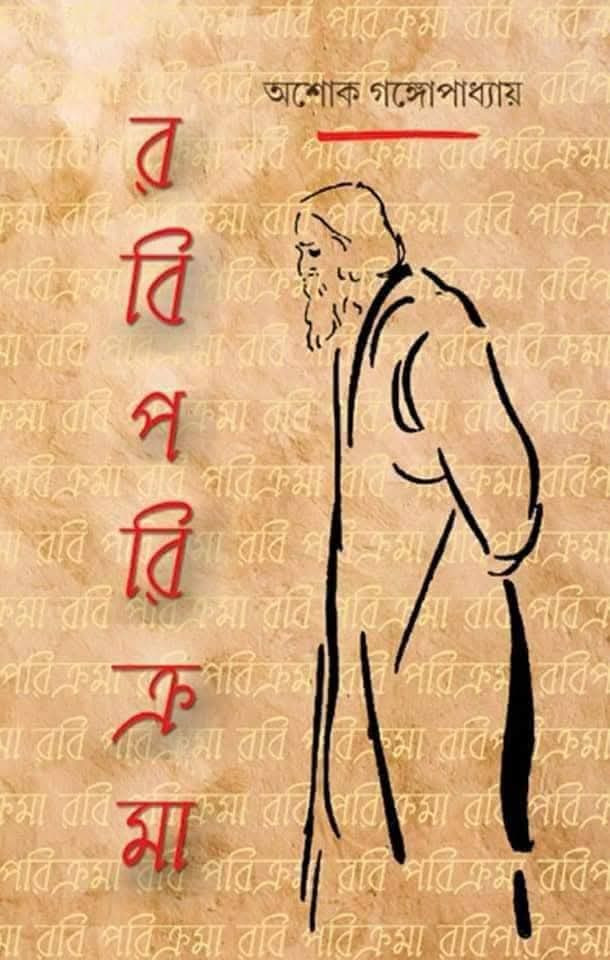 অশোক গঙ্গোপাধ্যায়
র
বি
প
রি
ক্র
মা